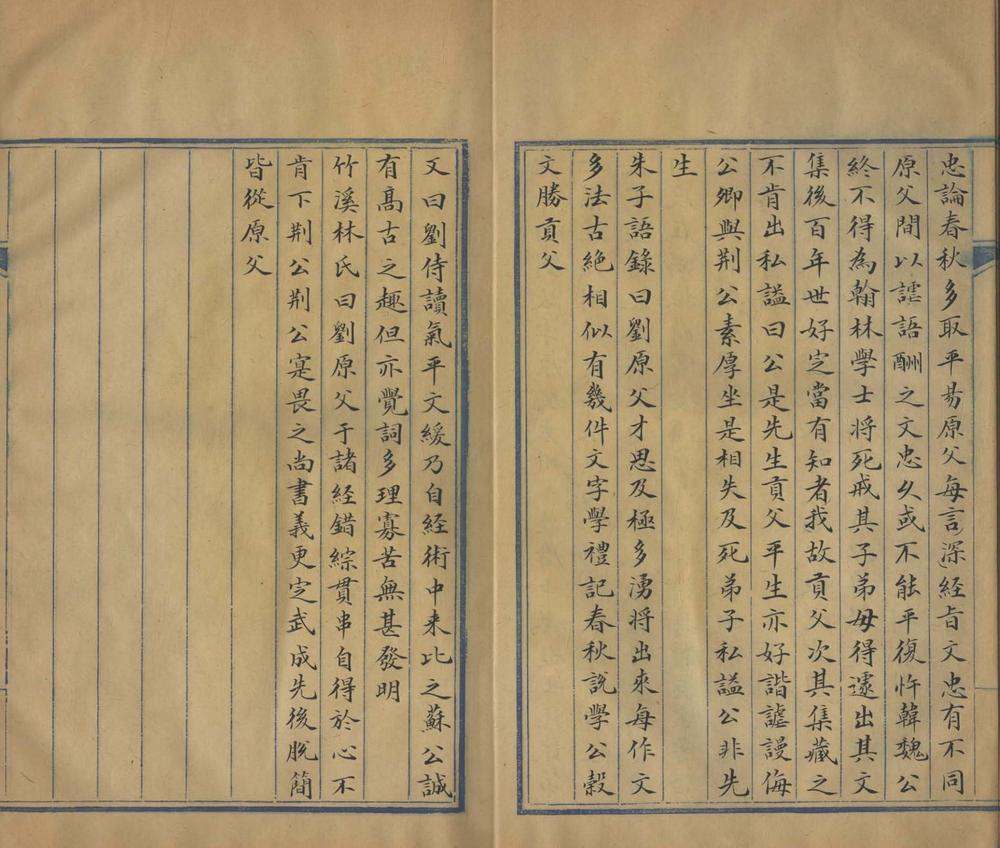 忠論春秋多取平昜原父每言深経旨文忠有不同
原父間以謔語酬之文忠久或不能平復忤韓魏公
終不得為翰林學士将死戒其子弟毋得遽出其文
集後百年世好定當有知者我故貢父次其集藏之
不肯出私謚曰公是先生貢父平生亦好諧謔謾侮
公卿與荆公素厚坐是相失及死弟子私謚公非先
生
朱子語錄曰劉原父才思及極多湧将出來每作文
多法古絶相似有幾件文字學禮記春秋說學公穀
文勝貢父
又曰劉侍讀氣平文緩乃自経術中来比之蘇公誠
有髙古之趣但亦覺詞多理寡苦無甚發明
竹溪林氏曰劉原父于諸経錯綜貫串自得於心不
肯下荆公荆公寔畏之尚書義更定武成先後脫簡
皆從原父